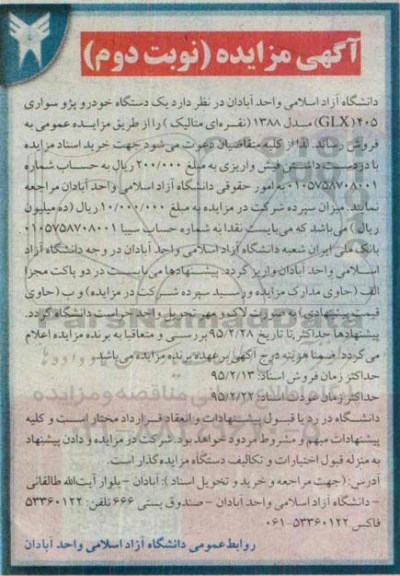 آگهی مزایده (نوبت دوم)
دانشگاه آزاد اسلامی واحد آبادان در نظر دارد یک دستگاه خودرو پژو سواری
۴۰۵ (GLX) مدل ۱۳۸۸ (نقره‌ای متالیک) را از طریق مزایده عمومی به
فروش رساند. لذا از کلیه متقاضیان دعوت می‌شود جهت خرید اسناد مزایده
با در دست داشتن فیش واریزی به مبلغ ۲۰۰/۰۰۰ ریال به حساب شماره
۰۱۰۵۷۵۸۷۰۸۰۰۱ به امور حقوقی دانشگاه آزاد اسلامی واحد آبادان مراجعه
نمایند. میزان سپرده شرکت در مزایده به مبلغ ۱۰/۰۰۰/۰۰۰ ریال (ده میلیون
ریال) می‌باشد که می‌بایست نقدا به شماره حساب سیبا ۰۱۰۵۷۵۸۷۰۸۰۰۱
بانک ملی ایران شعبه دانشگاه آزاد اسلامی واحد آبادان در وجه دانشگاه آزاد
اسلامی واحد آبادان واریز گردد. پیشنهادها می‌بایست در دو پاکت مجزا
الف (حاوی مدارک مزایده و رسید سپرده شرکت در مزایده) و ب (حاوی
قیمت پیشنهادی) به صورت لاک و مهر تحویل واحد حراست دانشگاه گردد.
پیشنهادها حداکثر تا تاریخ ۹۵/۲/۲۸ بررسی و متعاقبا به برنده مزایده اعلام
می‌گردد. ضمنا هزینه درج آگهی بر عهده برنده مزایده می‌باشد.
حداکثر زمان فروش اسناد: ۹۵/۲/۱۳
حداکثر زمان عودت اسناد: ۹۵/۲/۲۲
دانشگاه در رد یا قبول پیشنهادات و انعقاد قرارداد مختار است و کلیه
پیشنهادات مبهم و مشروط مردود خواهد بود. شرکت در مزایده و دادن پیشنهاد
به منزله قبول اختیارات و تکالیف دستگاه مزایده گذار است.
آدرس: (جهت مراجعه و خرید و تحویل اسناد): آبادان - بلوار آیت‌الله طالقانی
- دانشگاه آزاد اسلامی واحد آبادان - صندوق پستی ۶۶۶ تلفن: ۵۳۳۶۰۱۲۲
فاکس ۵۳۳۶۰۱۲۲-۰۶۱
روابط عمومی دانشگاه آزاد اسلامی واحد آبادان